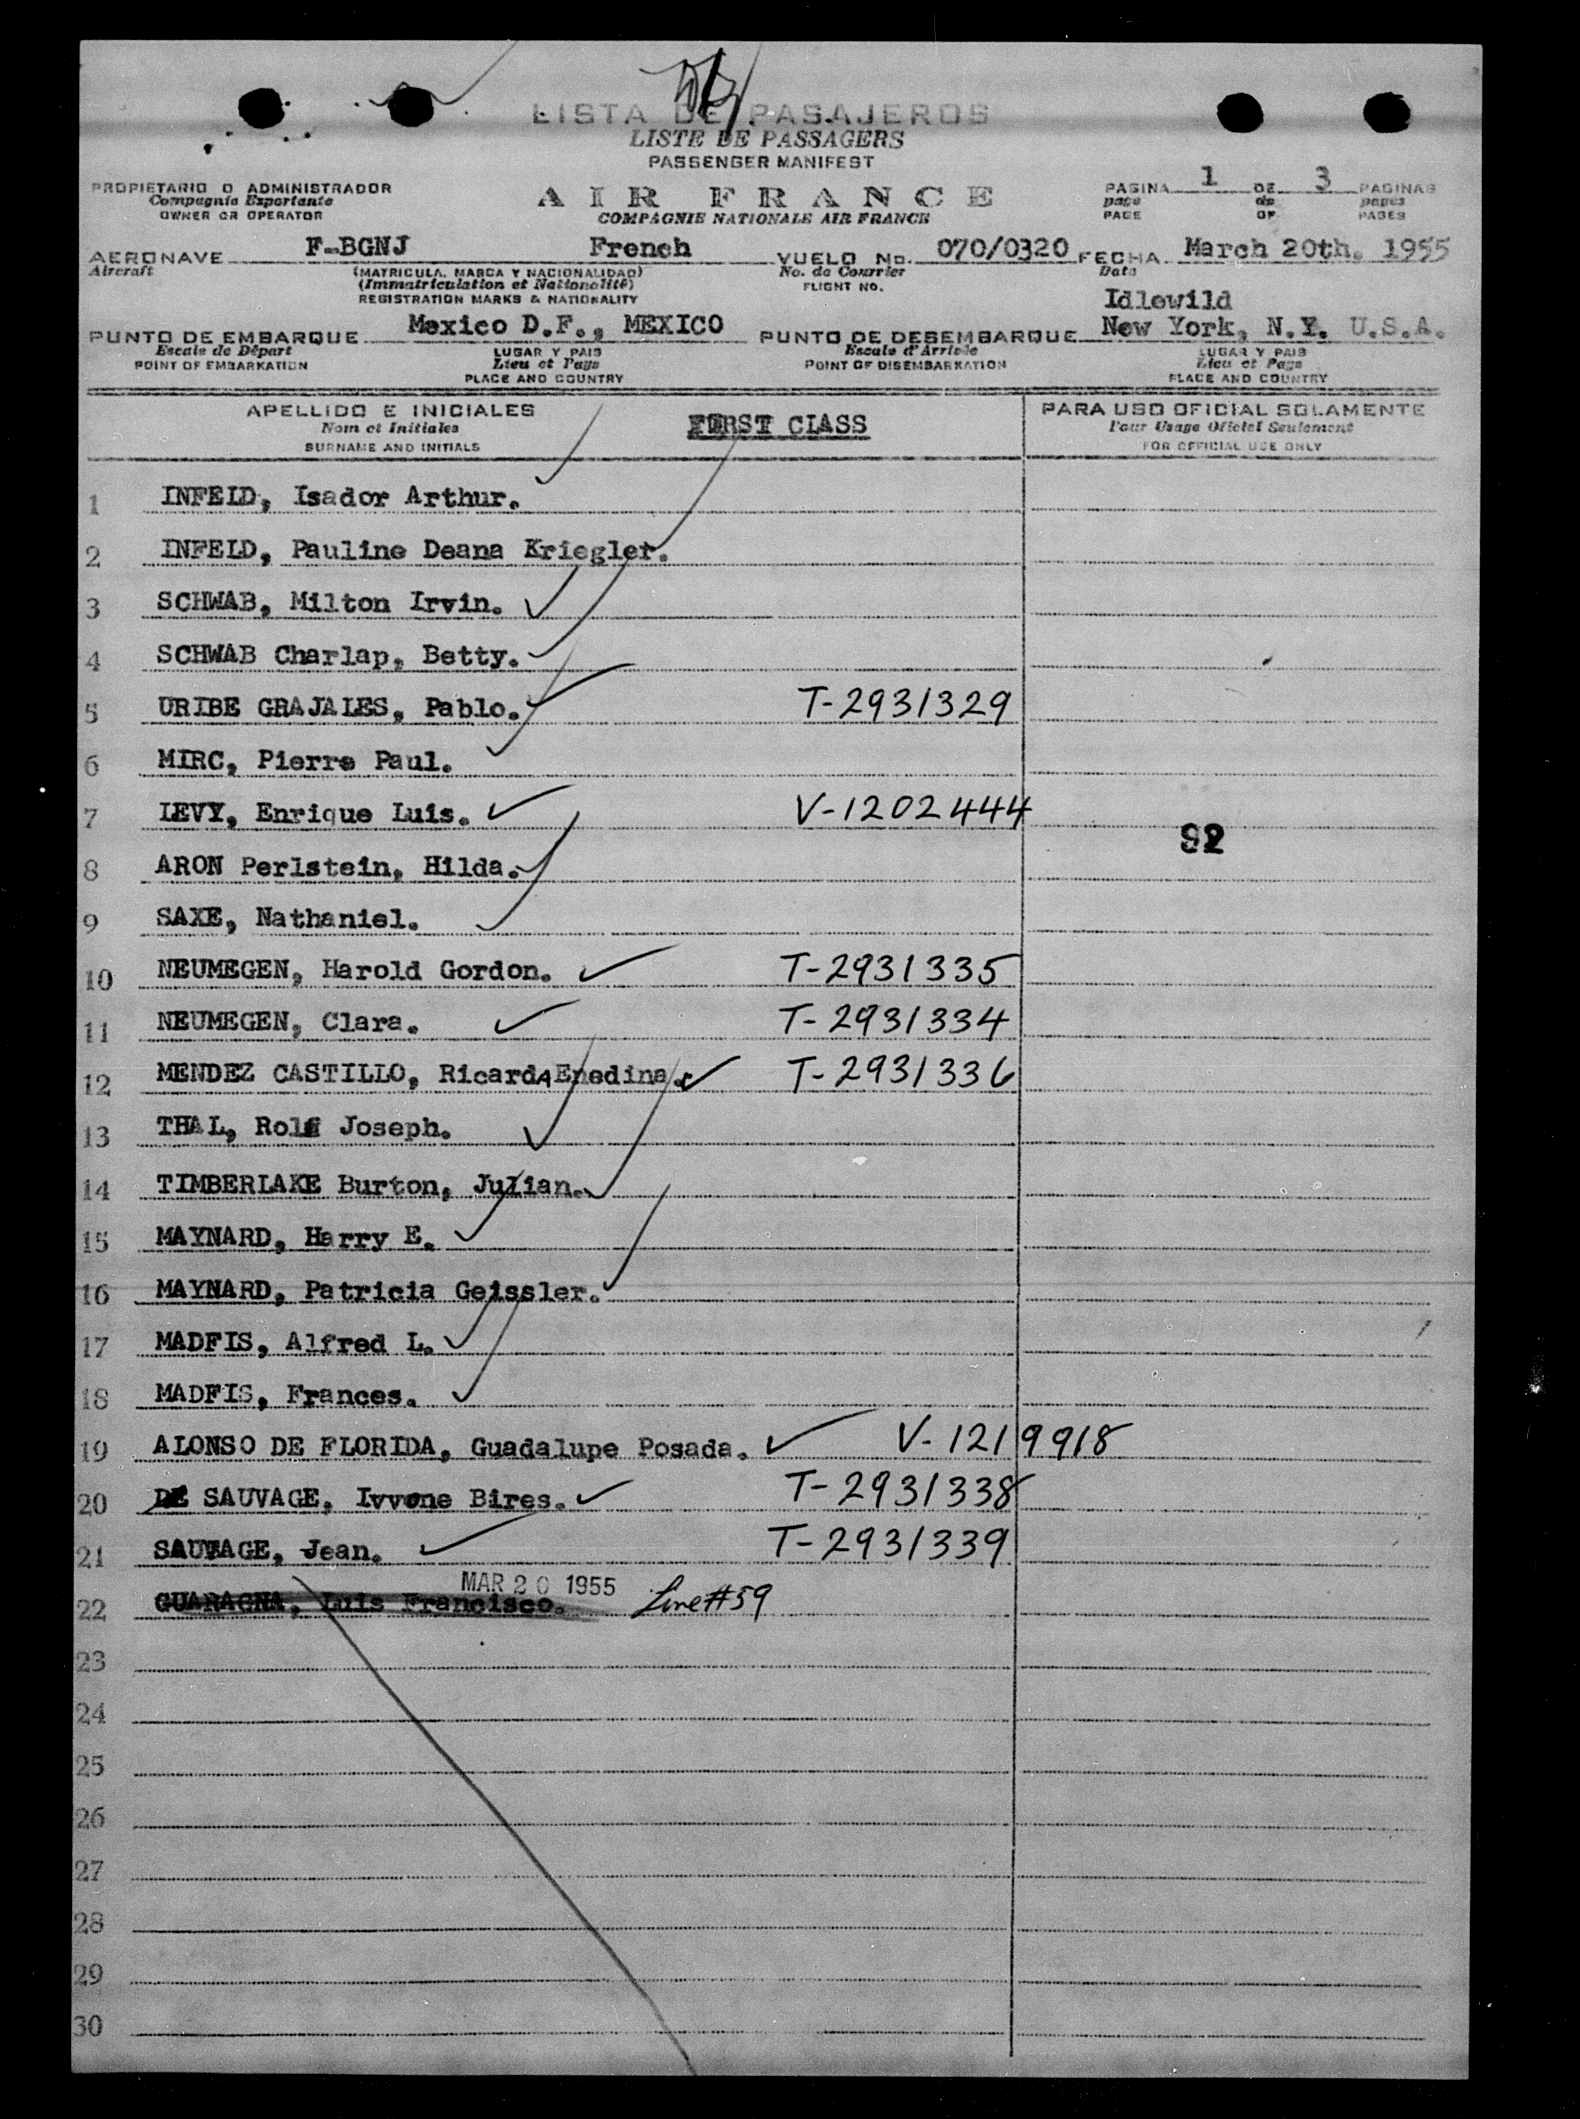 LISTA DE PASAJEROS
LISTE DE PASSAGERS
PASSENGER MANIFEST
PROPIETARIO O ADMINISTRADOR
Compagnie Exportante
OWNER OR OPERATOR
AIR FRANCE
COMPAGNIE NATIONALE AIR FRANCE
PAGINA 1 DE 3 PAGINAS
page de pages
PAGE OF PAGES
AERONAVE F-BGNJ French VUELO No. 070/0320 FECHA March 20th. 1955
Aircraft (MATRICULA, MARCA Y NACIONALIDAD) No. de Courrier Date
(Immatriculation et Nationalité) FLIGHT NO.
REGISTRATION MARKS & NATIONALITY
Idlewild
PUNTO DE EMBARQUE Mexico D.F., MEXICO PUNTO DE DESEMBARQUE New York, N.Y. U.S.A.
Escale de Départ LUGAR Y PAIS Escale d'Arrivée LUGAR Y PAIS
POINT OF EMBARKATION Lieu et Pays POINT OF DISEMBARKATION Lieu et Pays
PLACE AND COUNTRY PLACE AND COUNTRY
APELLIDO E INICIALES FIRST CLASS PARA USO OFICIAL SOLAMENTE
Nom et Initiales Pour Usage Officiel Seulement
SURNAME AND INITIALS FOR OFFICIAL USE ONLY
1 INFELD, Isador Arthur.
2 INFELD, Pauline Deana Kriegler.
3 SCHWAB, Milton Irvin.
4 SCHWAB Charlap, Betty.
5 URIBE GRAJALES, Pablo. T-2931329
6 MIRC, Pierre Paul.
7 LEVY, Enrique Luis. V-1202444
92
8 ARON Perlstein, Hilda.
9 SAXE, Nathaniel.
10 NEUMEGEN, Harold Gordon. T-2931335
11 NEUMEGEN, Clara. T-2931334
12 MENDEZ CASTILLO, RicardA Enedina. T-2931336
13 THAL, Rolf Joseph.
14 TIMBERLAKE Burton, Julian.
15 MAYNARD, Harry E.
16 MAYNARD, Patricia Geissler.
17 MADFIS, Alfred L.
18 MADFIS, Frances.
19 ALONSO DE FLORIDA, Guadalupe Posada. V-1219918
20 DE SAUVAGE, Ivvone Bires. T-2931338
21 SAUVAGE, Jean. T-2931339
MAR 20 1955
22 GUARAGNA, Luis Francisco. Line #59
23
24
25
26
27
28
29
30